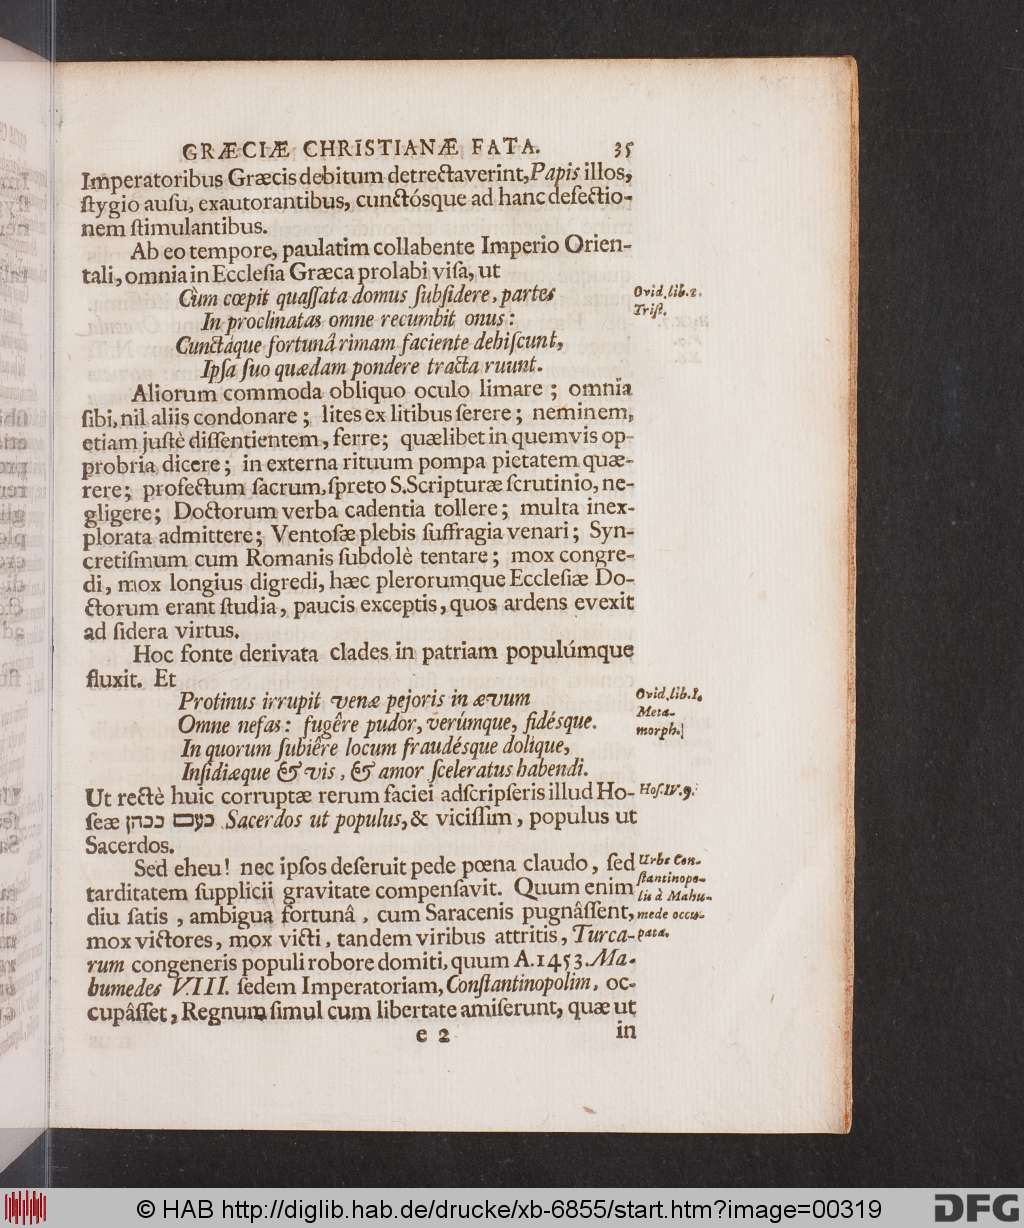 GRÆCIÆ CHRISTIANÆ FATA. 35
Imperatoribus Græcis debitum detrectaverint, Papis illos,
ſtygio auſu, exautorantibus, cunctósque ad hanc defectio-
nem ſtimulantibus.
Ab eo tempore, paulatim collabente Imperio Orien-
tali, omnia in Eccleſia Græca prolabi viſa, ut
Cùm cœpit quaſſata domus ſubſidere, partes
In proclinatas omne recumbit onus:
Cunctáque fortunâ rimam faciente dehiſcunt,
Ipſa ſuo quædam pondere tracta ruunt.
Ovid. lib. 2.
Triſt.
Aliorum commoda obliquo oculo limare; omnia
ſibi, nil aliis condonare; lites ex litibus ſerere; neminem,
etiam juſtè diſſentientem, ferre; quælibet in quemvis op-
probria dicere; in externa rituum pompa pietatem quæ-
rere; profectum ſacrum, ſpreto S. Scripturæ ſcrutinio, ne-
gligere; Doctorum verba cadentia tollere; multa inex-
plorata admittere; Ventoſæ plebis ſuffragia venari; Syn-
cretiſmum cum Romanis ſubdolè tentare; mox congre-
di, mox longius digredi, hæc plerorumque Eccleſiæ Do-
ctorum erant ſtudia, paucis exceptis, quos ardens evexit
ad ſidera virtus.
Hoc fonte derivata clades in patriam populúmque
fluxit. Et
Protinus irrupit venæ pejoris in ævum
Omne nefas: fugêre pudor, verúmque, fidésque.
In quorum ſubiêre locum fraudésque dolique,
Inſidiæque & vis, & amor ſceleratus habendi.
Ovid. lib. I.
Meta-
morph.
Ut rectè huic corruptæ rerum faciei adſcripſeris illud Ho-
ſeæ כעם ככהן Sacerdos ut populus, & viciſſim, populus ut
Sacerdos.
Hoſ. IV. 9.
Sed eheu! nec ipſos deſeruit pede pœna claudo, ſed
tarditatem ſupplicii gravitate compenſavit. Quum enim
diu ſatis, ambigua fortunâ, cum Saracenis pugnâſſent,
mox victores, mox victi, tandem viribus attritis, Turca-
rum congeneris populi robore domiti, quum A. 1453. Ma-
humedes VIII. ſedem Imperatoriam, Conſtantinopolim, oc-
cupâſſet, Regnum ſimul cum libertate amiſerunt, quæ ut
Urbs Con-
ſtantinopo-
lis à Mahu-
mede occu-
pata.
e 2 in
© HAB http://diglib.hab.de/drucke/xb-6855/start.htm?image=00319
DFG